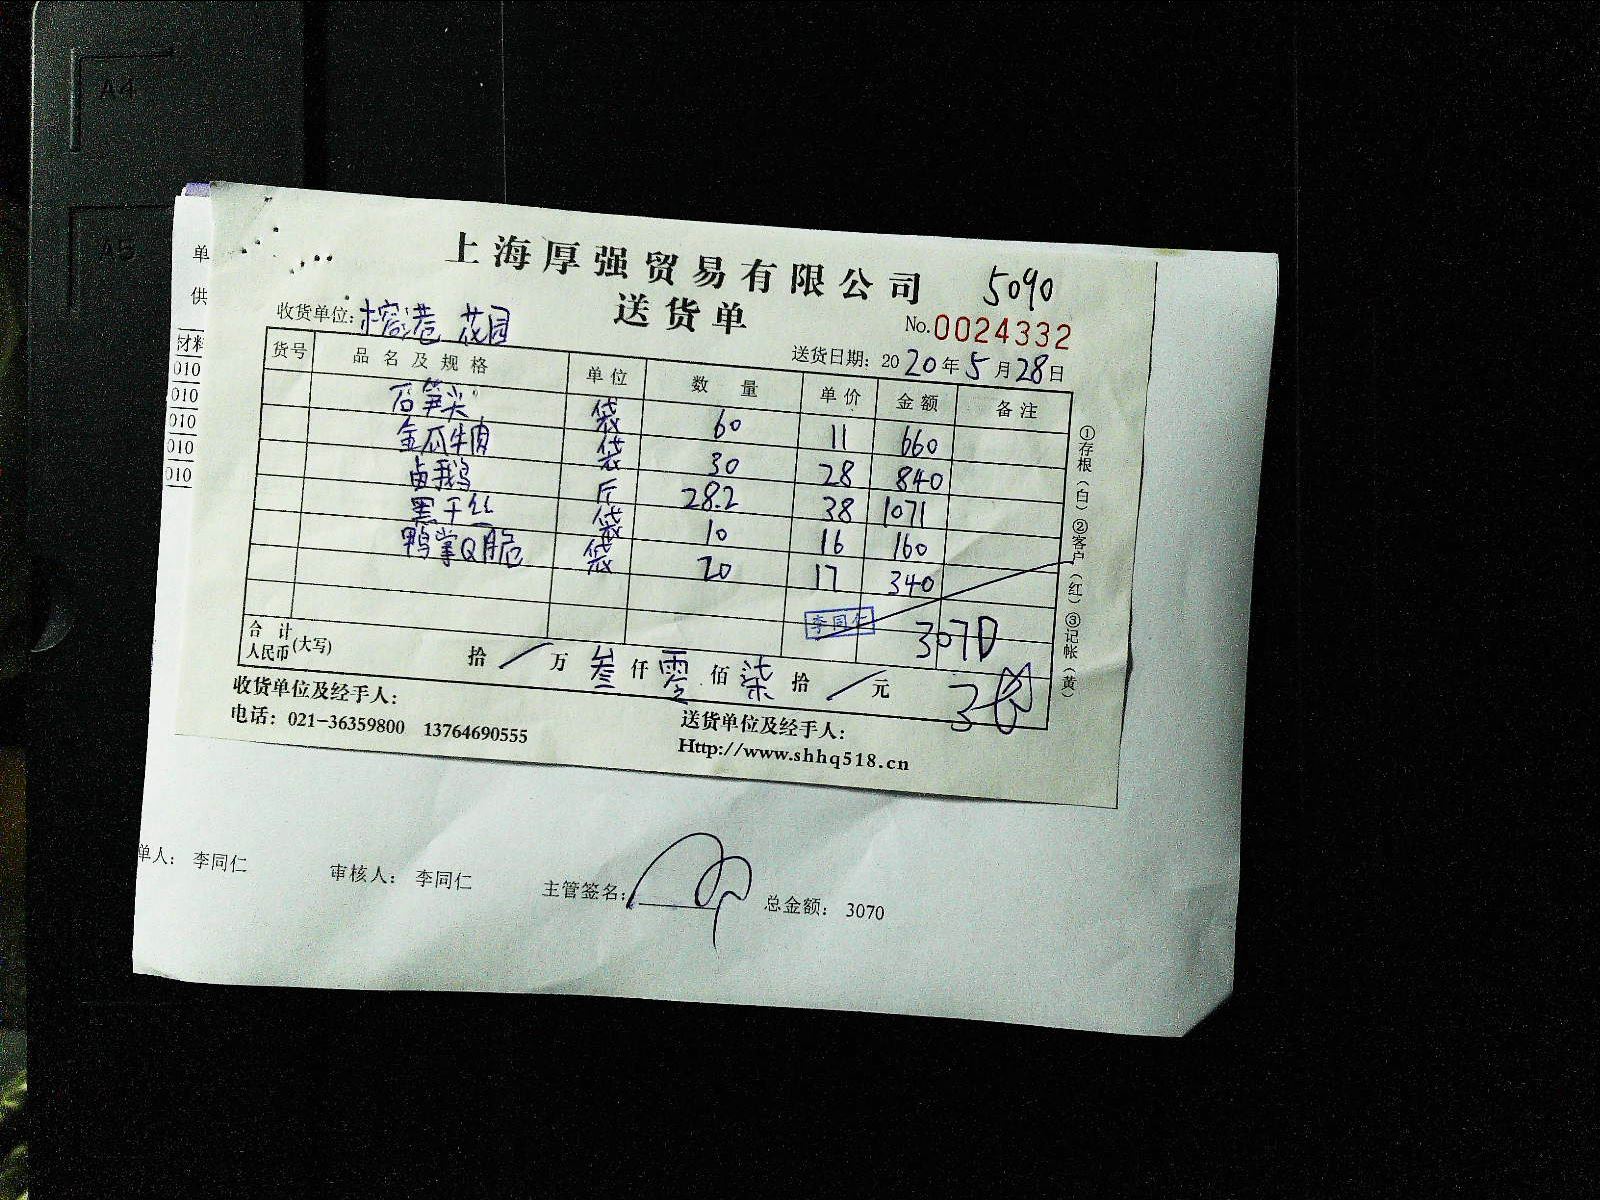 A4
A5
单
供
材料
010
010
010
010
010
上海厚强贸易有限公司
5090
送货单
收货单位: 榕港 花园
No.0024332
送货日期: 2020年5月28日
货号 品名及规格 单位 数量 单价 金额 备注
石笋尖 袋 60 11 660
金瓜牛肉 袋 30 28 840
卤鹅 斤 28.2 38 1071
黑干丝 袋 10 16 160
鸭掌Q脆 袋 20 17 340
李同仁
3070
合计人民币(大写) 拾 / 万 叁 仟 零 佰 柒 拾 / 元
①存根(白)②客户(红)③记帐(黄)
收货单位及经手人:
送货单位及经手人:
电话: 021-36359800 13764690555
Http://www.shhq518.cn
单人: 李同仁 审核人: 李同仁 主管签名: 总金额: 3070